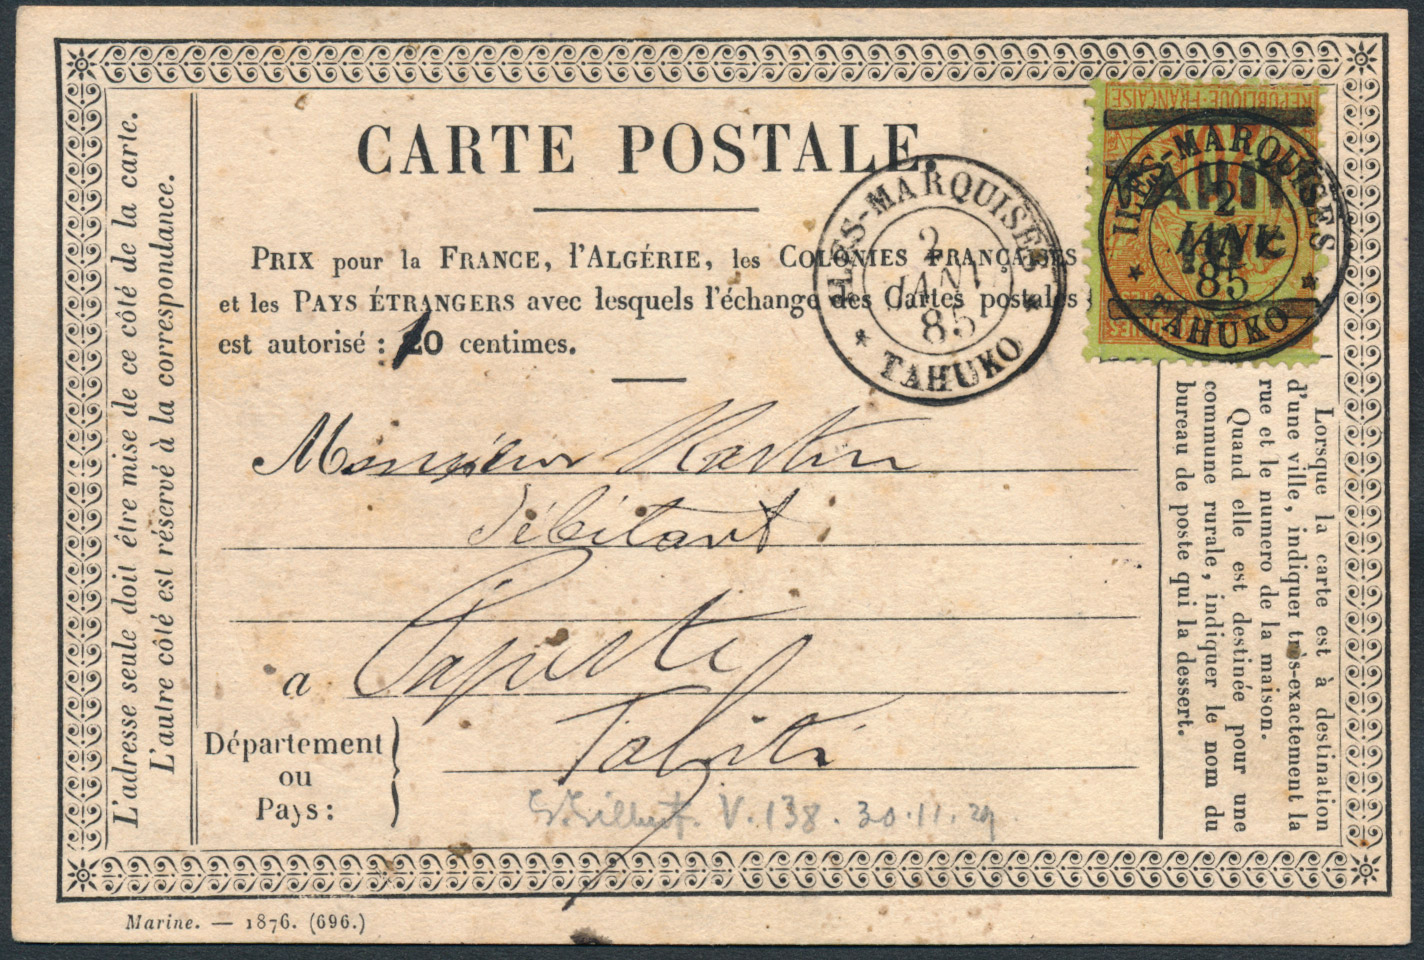 CARTE POSTALE.
PRIX pour la FRANCE, l'ALGÉRIE, les COLONIES FRANÇAISES
et les PAYS ÉTRANGERS avec lesquels l'échange des Cartes postales
est autorisé : 10 centimes.
Monsieur Martin
débitant
a Papeete
Département
ou
Pays :
Tahiti
V. 138. 30.11.29.
L'adresse seule doit être mise de ce côté de la carte.
L'autre côté est réservé à la correspondance.
Lorsque la carte est à destination
d'une ville, indiquer très-exactement la
rue et le numero de la maison.
Quand elle est destinée pour une
commune rurale, indiquer le nom du
bureau de poste qui la dessert.
ILES-MARQUISES
2
JANV.
85
TAHUKO
RÉPUBLIQUE FRANÇAISE
TAHITI
ILES-MARQUISES
2
JANV
85
TAHUKO
Marine. — 1876. (696.)